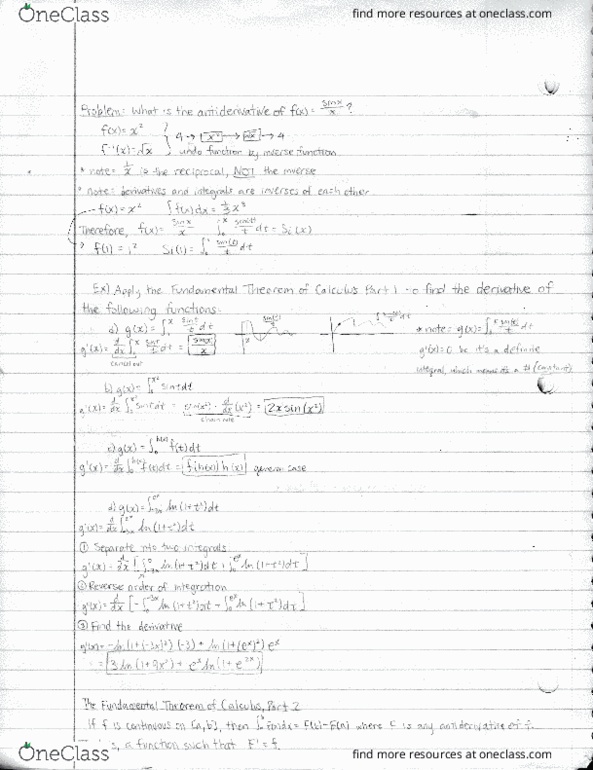 OneClass find more resources at oneclass.com
Problem: What is the antiderivative of f(x) = sinx/x ?
f(x) = x²
4 → x² → √x → 4
f⁻¹(x) = √x undo function by inverse function
* note: 1/x is the reciprocal, NOT the inverse
* note: derivatives and integrals are inverses of each other
f(x) = x² ∫f(x)dx = 1/3 x³
Therefore, f(x) = sinx/x ∫₀ˣ sin(t)/t dt = Si(x)
f(1) = 1² Si(1) = ∫₀¹ sin(t)/t dt
Ex) Apply the Fundamental Theorem of Calculus Part 1 to find the derivative of
the following functions:
a) g(x) = ∫₀ˣ sint/t dt
* note: g(x) = ∫ sin(t)/t dt
g'(x) = d/dx ∫₀ˣ sint/t dt = sinx/x
cancel out
g'(x) = 0 bc it's a definite
integral, which means it's a # (constant)
b) g(x) = ∫₀^x² sintdt
g'(x) = d/dx ∫₀^x² sintdt = sin(x²) · d/dx (x²) = 2xsin(x²)
chain rule
c) g(x) = ∫₀^h(x) f(t)dt
g'(x) = d/dx ∫₀^h(x) f(t)dt = f(h(x)) h'(x) general case
d) g(x) = ∫₋₃ₓ^eˣ ln(1+t²)dt
g'(x) = d/dx ∫₋₃ₓ^eˣ ln(1+t²)dt
① Separate into two integrals
g'(x) = d/dx [∫₋₃ₓ⁰ ln(1+t²)dt + ∫₀^eˣ ln(1+t²)dt]
② Reverse order of integration
g'(x) = d/dx [-∫₀^-3x ln(1+t²)dt + ∫₀^eˣ ln(1+t²)dt]
③ Find the derivative
g'(x) = -ln(1+(-3x)²)(-3) + ln(1+(eˣ)²)eˣ
= 3ln(1+9x²) + eˣln(1+e²ˣ)
The Fundamental Theorem of Calculus, Part 2
If f is continuous on [a,b], then ∫ₐᵇ f(x)dx = F(b)-F(a) where F is any antiderivative of f.
is, a function such that F' = f.
OneClass find more resources at oneclass.com